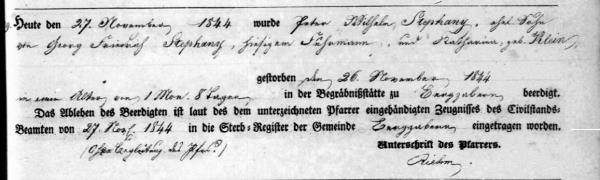 Heute den 27. November 1844 wurde Peter Wilhelm Stephany, ehel. Sohn
von Georg Friedrich Stephany, hiesigem Fuhrmann, und Katharina, geb. Klein,
gestorben den 26. November 1844
in einem Alter von 1 Mon. 8 Tagen in der Begräbnißstätte zu Bergzabern beerdigt.
Das Ableben des Beerdigten ist laut des dem unterzeichneten Pfarrer eingehändigten Zeugnisses des Civilstands-
Beamten von 27. Nov. 1844 in die Sterb-Register der Gemeinde Bergzabern eingetragen worden.
(Ohne Begleitung des Pfrs.)
Unterschrift des Pfarrers.